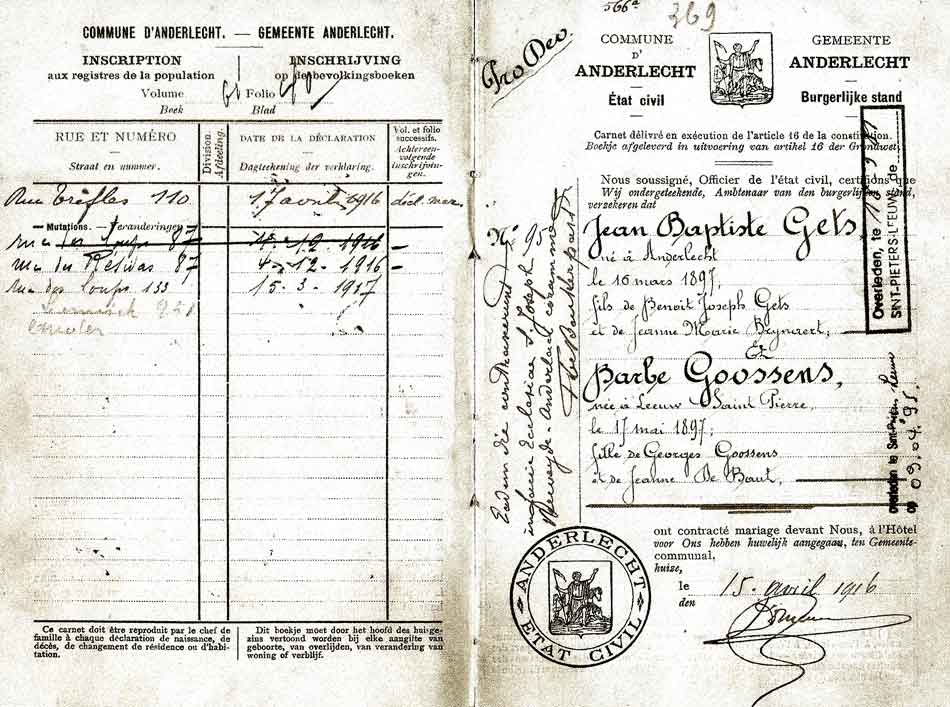 COMMUNE D'ANDERLECHT. — GEMEENTE ANDERLECHT.
INSCRIPTION
aux registres de la population
INSCHRIJVING
op de bevolkingsboeken
Volume
Boek
Folio
Blad
RUE ET NUMÉRO
—
Straat en nummer.
Division.
Afdeeling.
DATE DE LA DÉCLARATION
—
Dagteekening der verklaring.
Vol. et folio
successifs.
Achtereen-
volgende
inschrijvin-
gen.
Rue Trèfles 110 17 avril 1916
Mutations. — Veranderingen
rue des Loups 87 4-12-1916 —
rue du 87 4-12-1916 —
rue des Loups 133 15-3-1917
Ce carnet doit être reproduit par le chef de
famille à chaque déclaration de naissance, de
décès, de changement de résidence ou d'habi-
tation.
Dit boekje moet door het hoofd des huisge-
zins vertoond worden bij elke aangifte van
geboorte, van overlijden, van verandering van
woning of verblijf.
566a
369
Pro Deo.
COMMUNE
D'
ANDERLECHT
—
État civil
GEMEENTE
ANDERLECHT
—
Burgerlijke stand
Carnet délivré en exécution de l'article 16 de la constitution.
Boekje afgeleverd in uitvoering van artikel 16 der Grondwet.
Nous soussigné, Officier de l'état civil, certifions que
Wij ondergeteekende, Ambtenaar van den burgerlijken stand,
verzekeren dat
Jean Baptiste Gets
né à Anderlecht
le 16 mars 1897,
fils de Benoit Joseph Gets
et de Jeanne Marie Reynaert;
Et
Barbe Goossens,
née à Leeuw Saint Pierre,
le 17 mai 1897;
fille de Georges Goossens
et de Jeanne De Baut,
Overleden, te
SINT-PIETERS-LEEUW de
Overleden te Sint-Pieters-Leeuw
op 09.04.95
No 95
Eadem die contraxerunt
in facie Ecclesiae S. Joseph
ont contracté mariage devant Nous, à l'Hôtel
voor Ons hebben huwelijk aangegaan, ten Gemeente-
communal,
huize,
le
den
15. avril 1916
ANDERLECHT
ETAT CIVIL